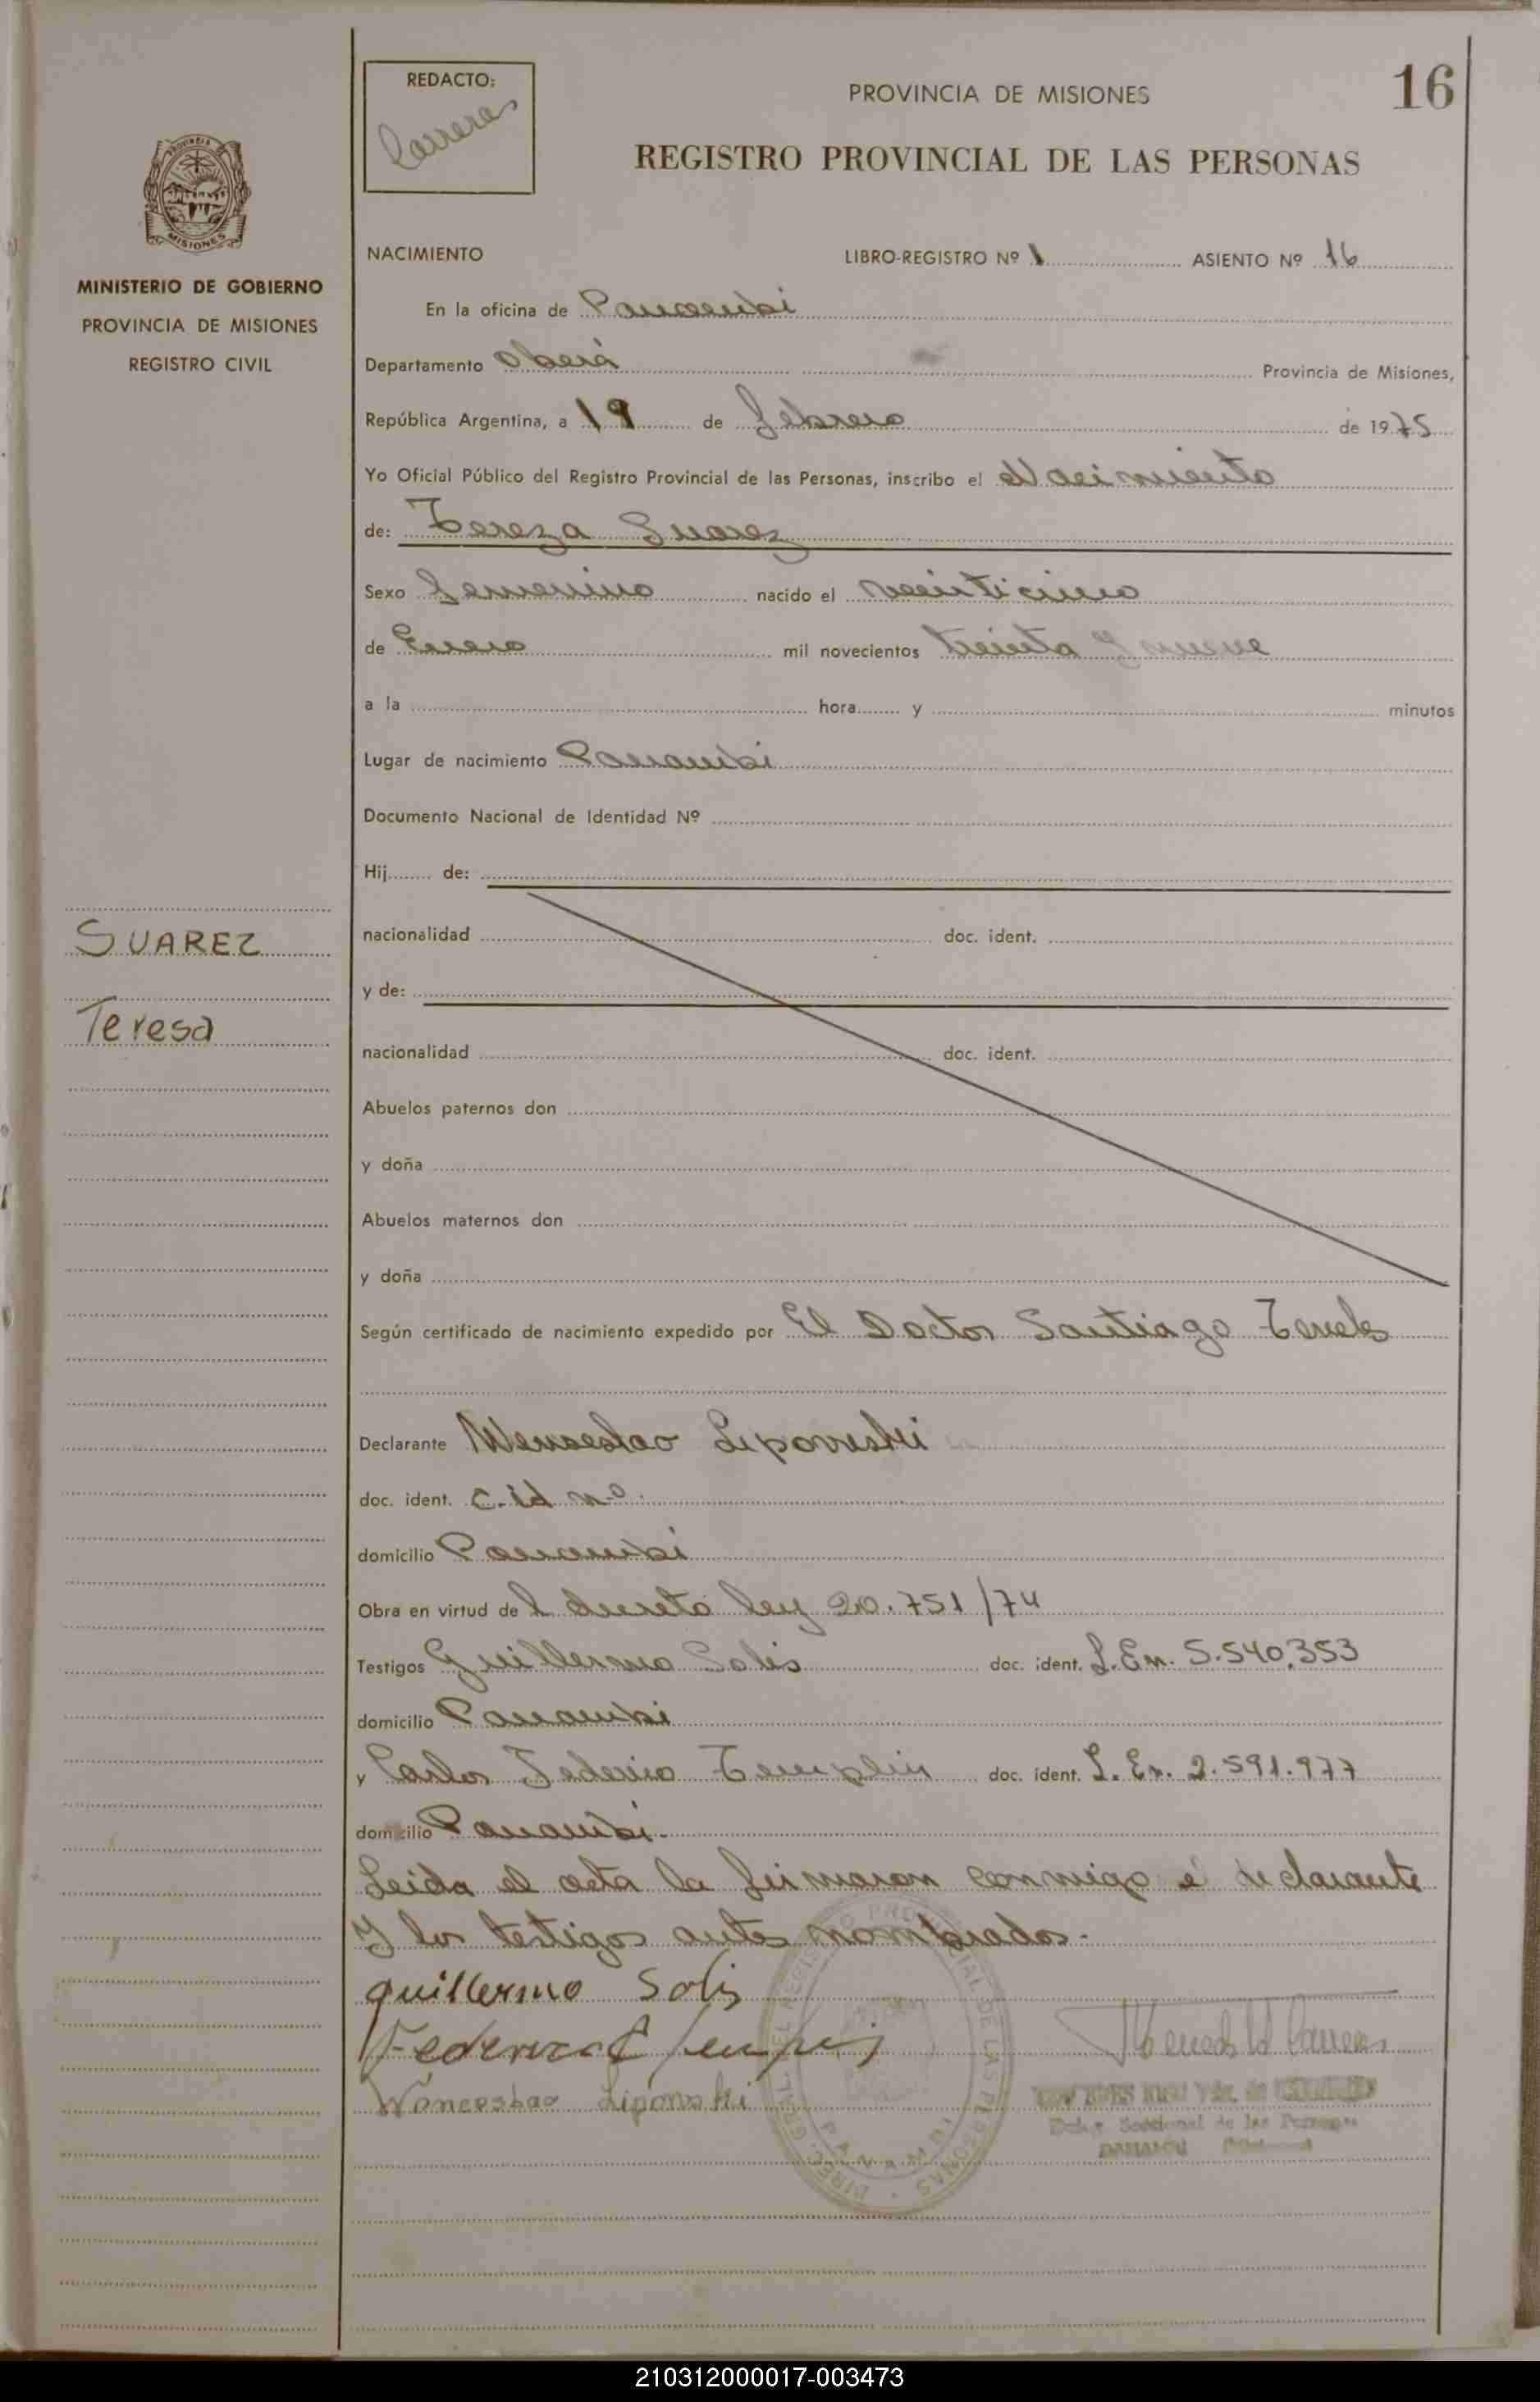 16
REDACTO:
Carreras
PROVINCIA DE MISIONES
REGISTRO PROVINCIAL DE LAS PERSONAS
PROVINCIA DE
MISIONES
MINISTERIO DE GOBIERNO
PROVINCIA DE MISIONES
REGISTRO CIVIL
SUAREZ
Teresa
NACIMIENTO LIBRO-REGISTRO Nº 1 ASIENTO Nº 16
En la oficina de Panambi
Departamento Oberá Provincia de Misiones,
República Argentina, a 19 de febrero de 1975
Yo Oficial Público del Registro Provincial de las Personas, inscribo el Nacimiento
de: Tereza Suarez
Sexo femenino nacido el veinticinco
de Enero mil novecientos treinta y nueve
a la hora y minutos
Lugar de nacimiento Panambi
Documento Nacional de Identidad Nº
Hij de:
nacionalidad doc. ident.
y de:
nacionalidad doc. ident.
Abuelos paternos don
y doña
Abuelos maternos don
y doña
Según certificado de nacimiento expedido por El Doctor Santiago
Declarante Wenseslao Lipovsski
doc. ident. c.id nº.
domicilio Panambi
Obra en virtud del decreto ley 20.751/74
Testigos Guillermo Solis doc. ident. L.En. 5.540.353
domicilio Panambi
y Carlos Federico Templin doc. ident. L.En. 2.591.977
domicilio Panambi.
Leida el acta la firmaron conmigo e declarante
y los testigos antes nombrados.
guillermo Solis
Wonceslao Liponski
PANAMBI
210312000017-003473